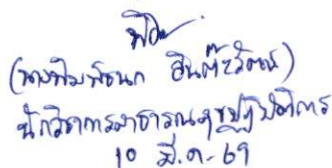 (นางพิมพ์ชนก อินต๊ะวัฒน์)
นักวิชาการสาธารณสุขปฏิบัติการ
10 มี.ค. 69